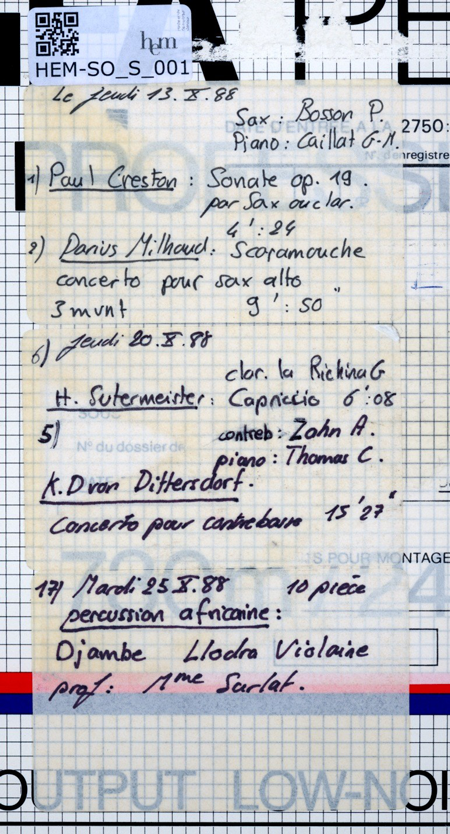 hem
HEM-SO_S_001
Le jeudi 13.X.88
Sax : Bosson P.
Piano : Caillat G-M.
2750:
1) Paul Creston : Sonate op. 19.
par Sax ou clar.
4' : 24
2) Darius Milhaud : Scaramouche
concerto pour sax alto
3 mvnt 9' : 50"
6) jeudi 20.X.88
clar. la Richina G
H. Sutermeister : Capriccio 6' : 08
5) contreb : Zahn A.
piano : Thomas C.
K.D von Dittersdorf.
Concerto pour contrebasse 15'27"
17) Mardi 25.X.88 10 pièce
percussion africaine :
Djambe Llodra Violaine
prof : Mme Sarlat.
N° du dossier de
S POUR MONTAGE
OUTPUT LOW-NOI